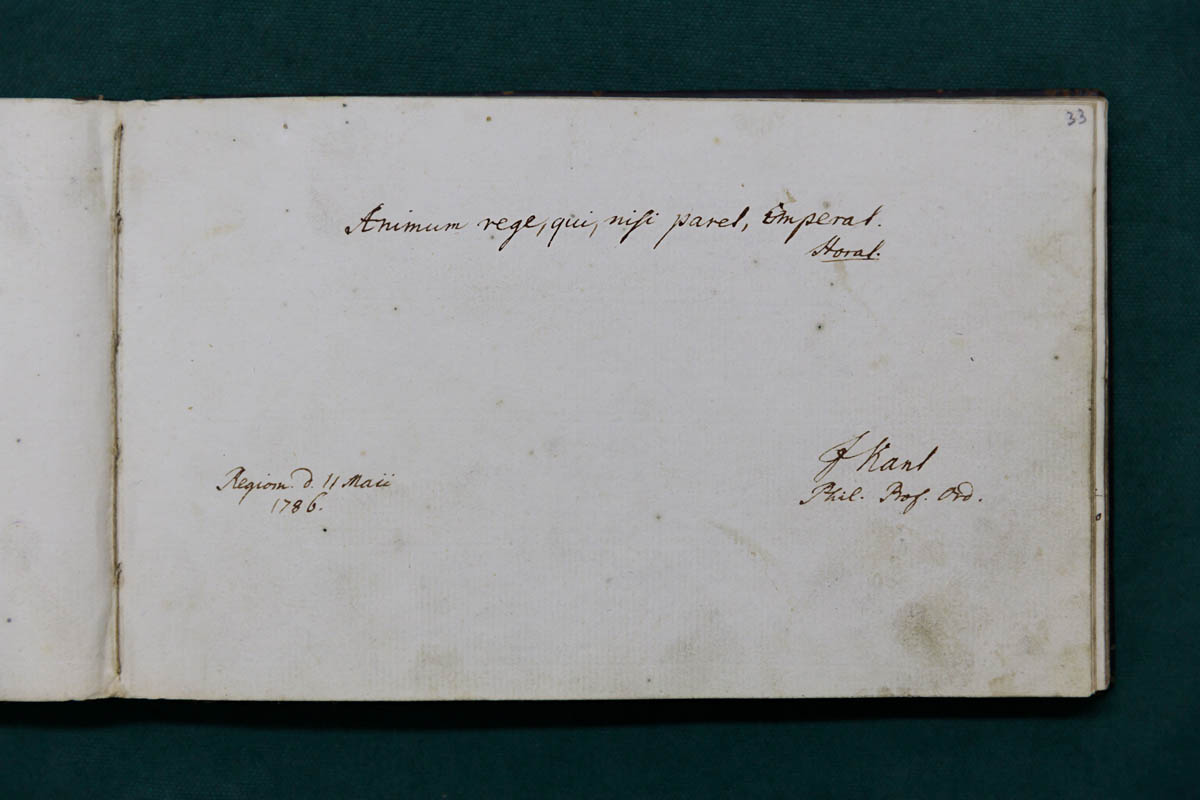 33
Animum rege, qui, nisi paret, Imperat.
Horat.
Regiom. d. 11 Maii
1786.
I Kant
Phil. Prof. Ord.